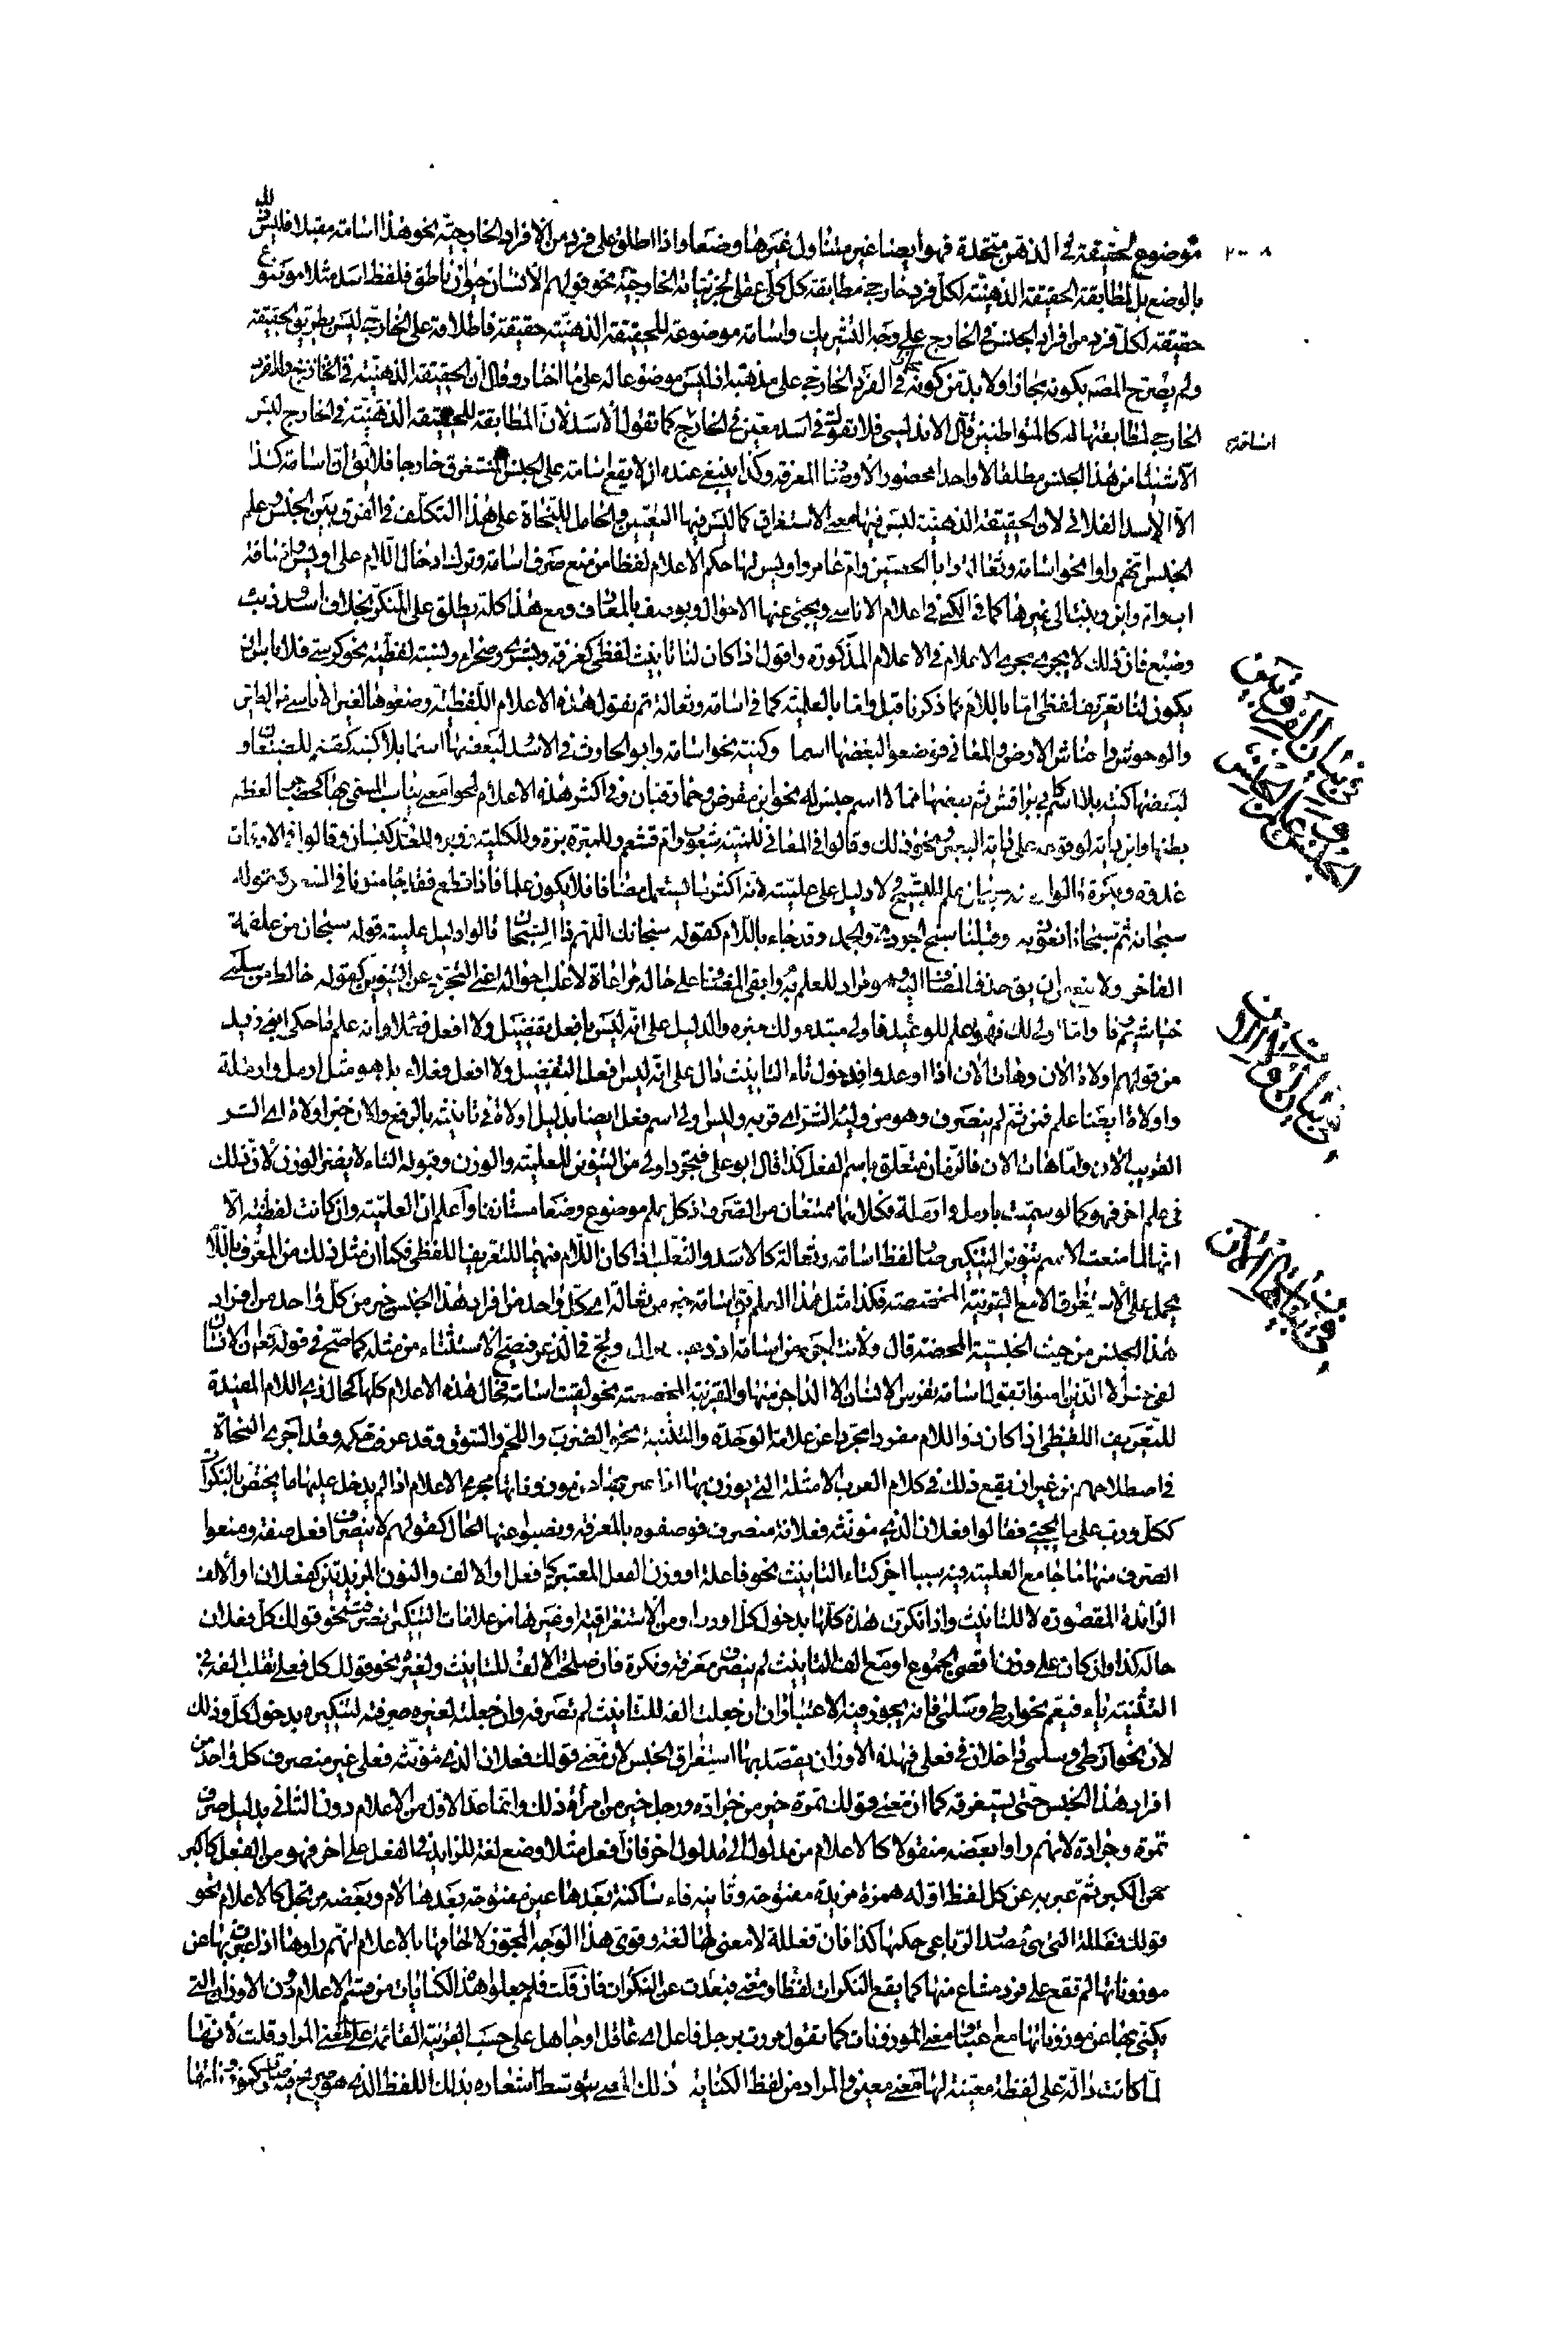 موضوع لحقيقة في الذهن متحدة فهو ايضا غير متناول غيرها وضعا واذا اطلق على فرد من الافراد الخارجية نحو هذا اسامة مقبلا فليس ذلك
بالوضع بل لمطابقة الحقيقة الذهنية لكل فرد خارجي مطابقة كل كلي عقلي لجزئياته الخارجية نحو قولهم الانسان حيوان ناطق فلفظ اسد مثلا موضوع
حقيقة لكل فرد من افراد الجنس في الخارج على وجه التشريك واسامة موضوعة للحقيقة الذهنية حقيقة فاطلاقه على الخارجي ليس بطريق الحقيقة
ولم يصرح المصـ بكونه مجازا ولا بد من كونه مجازا في الفرد الخارجي على مذهبه اذ ليس موضوعا له على ما اختار وقال ان الحقيقة الذهنية في الخارج والفرد
الخارجي لمطابقتها له كالمتواطئين قال الاندلسي فلا تقول اسامة في اسد معين في الخارج كما تقول الاسد لان المطابقة للحقيقة الذهنية في الخارج ليس
الا شيئا من هذا الجنس مطلقا لا واحدا محصور الاوصاف المعرفة وكذا ينبغي عنده ان لا يقع اسامة على الجنس المستغرق خارجا فلا يق ان اسامة كذا
الا الاسد الفلاني لان الحقيقة الذهنية ليس فيها معنى الاستغراق كما ليس فيها التعيين والحامل للنحاة على هذا التكلف في الفرق بين الجنس وعلم
الجنس انهم راوا نحو اسامة وثعالة وابا الحصين وام عامر واويس لها حكم الاعلام لفظا من منع صرف اسامة وترك ادخال اللام على اويس واضافة
اب وام وابن وبنت الى غيرها كما في الكنى في اعلام الاناسي ويجئ عنها الاحوال ويوصف بالمعارف ومع هذا كله يطلق على المنكر بخلاف اسد وذئب
وضبع فان ذلك لا يجري مجرى الاعلام في الاعلام المذكورة واقول اذا كان لنا تانيث لفظي كغرفة وبشرى وصحراء ونسبة لفظية نحو كرسي فلا باس ان
يكون لنا تعريف لفظي اما باللام كما ذكرنا قبل واما بالعلمية كما في اسامة وثعالة ثم نقول هذه الاعلام اللفظية وضعوها لغير الاناسي من الطير
والوحوش واحناش الارض والمعاني فوضعوا لبعضها اسما وكنية نحو اسامة وابو الحارث في الاسد لبعضها اسما بلا كنية كقثم للضبعان و
لبعضها كنية بلا اسم كابي براقش ثم بعضها مما لا اسم جنس له نحو ابن مقرض وحمار قبان وفي اكثر هذه الاعلام لمحوا معنى يناسب المسمى بها كحضاجر لعظم
بطنها وابن داية لوقوعه على داية البعير ونحو ذلك وقالوا في المعاني للمنية شعوب وام قشعم وللمبرة برة وللكلية زوبر وللغدر كيسان وقالوا في الاوقات
غدوة وبكرة قالوا سبحان علم للتسبيح ولا دليل على علميته لانه اكثر ما يستعمل مضافا فلا يكون علما فاذا قطع فقد جاء منونا في الشعر كقوله
سبحانه ثم سبحانا نعوذ به وقبلنا سبح الجودي والجمد وقد جاء باللام كقوله سبحانك اللهم ذا السبحان قالوا دليل علميته قوله سبحان من علقمة
الفاخر ولا منع من ان يق حذف المضاف اليه وهو مراد للعلم به وابقى المضاف على حاله مراعاة لاغلب احواله اعني التجرد عن التنوين كقوله خالط من سلمى
خياشيم وفا واما اولى لك فهو علم للوعيد فاولى مبتدء ولك خبره والدليل على انه ليس بافعل تفضيل ولا افعل فعلاء وانه علم ما حكى ابو زيد
من قولهم اولاة الان وهاه الان اذا اوعدوا فدخول تاء التانيث دال على انه ليس افعل التفضيل ولا افعل فعلاء بل هو مثل ارمل وارملة
واولاة ايضا علم فمن ثم لم ينصرف وهو من وليه الشر اي قربه وليس اولى اسم فعل ايضا بدليل اولاة في تانيثه بالرفع والان خبر اولاة اي الشر
القريب الان واما هاه الان فالزمان متعلق باسم الفعل كذا قال ابو علي فتجرد اولى من التنوين للعلمية والوزن وقبوله التاء لا يضر الوزن لان ذلك
في علم اخر فهو كما لو سميت بارمل وارملة فكلاهما ممتنعان من الصرف اذ كل علم موضوع وضعا مستانفا واعلم ان العلمية وان كانت لفظية الا
انها لما منعت الاسم تنوين التنكير صار لفظ اسامة وثعالة كالاسد والثعلب اذا كان اللام فيهما للتعريف اللفظي فكما ان مثل ذلك من المعرف باللام
يحمل على الاستغراق الا مع القرينة المخصصة فكذا مثل هذا العلم يق اسامة خير من ثعالة اي كل واحد من افراد هذا الجنس خير من كل واحد من افراد
هذا الجنس من حيث الجنسية المحضة قال ولانت اجرء من اسامة اذ دعيت نزال ولج في الذعر فيصح الاستثناء من مثله كما صح في قوله تعالى ان الانسان
لفي خسر الا الذين امنوا تقول اسامة تفرس الانسان الا الداجن منها والقرينة المخصصة نحو لقيت اسامة فحال هذه الاعلام كلها كحال ذي اللام المفيدة
للتعريف اللفظي اذا كان ذو اللام مفردا مجردا عن علامة الوحدة والتثنية نحو الضرب واللحم والسوق وقد عرفت حكمه وقد اجرى النحاة
في اصطلاحهم من غير ان يقع ذلك في كلام العرب الامثلة التي يوزن بها اذا عبر بها عن موزوناتها مجرى الاعلام اذا لم يدخل عليها ما يختص بالنكرات
ككل ورب على ما يجئ فقالوا فعلان الذي مؤنثه فعلانة منصرف فوصفوه بالمعرفة ونصبوا عنها الحال كقولهم لا ينصرف افعل صفة ومنعوا
الصرف منها ما جامع العلمية فيه سببا اخر كتاء التانيث نحو فاعلة او وزن الفعل المعتبر كافعل او الالف والنون المزيدتين كفعلان او الالف
الزائدة المقصورة لا للتانيث واذا نكرت هذه كلها بدخول كل او رب او من الاستغراقية او غيرها من علامات التنكير تصرفت نحو قولك كل فعلان
حاله كذا وان كان على وزن اقصى الجموع او مع الف التانيث لم ينصرف معرفة ونكرة فان صلحت الالف للتانيث ولغيره نحو قولك كل فعلى تقلب الفه في
التثنية ياء فنعم نحو ارطى وسلمى فانه يجوز فيه الاعتباران ان جعلت الفه للتانيث لم تصرفه وان جعلتها لغيره صرفته لتنكيره بدخول كل وذلك
لان نحو ارطى وسلمى داخلان في فعلى فهذه الاوزان يقصد بها استغراق الجنس لان معنى قولك فعلان الذي مؤنثه فعلى غير منصرف كل واحد من
افراد هذا الجنس حتى يستغرقه كما ان معنى قولك تمرة خير من جرادة ورجل خير من امراة ذلك وانما عد الاول من الاعلام دون الثاني بدليل صرف
تمرة وجرادة لانهم راوا بعضه منقولا كالاعلام من مدلول الى مدلول اخر فان افعل مثلا وضع لغة للزايد في الفعل على اخر فهو من الفعل كاكبر
من الكبر ثم عبر به عن كل لفظ اوله همزة مزيدة مفتوحة وثانيه فاء ساكنة بعدها عين مفتوحة بعدها لام وبعضه مرتجلا كالاعلام نحو
قولك فعللة التي هي مصدر الرباعي حكمها كذا فان فعللة لا معنى لها لغة وقوى هذا الوجه المجوز لالحاقها بالاعلام انهم راوها اذا عبرت بها عن
موزوناتها لم تقع على فرد مشاع منها كما يقع النكرات لفظا ومعنى فبعدت عن النكرات فان قلت فلم جعلوا هذه الكنايات من قسم الاعلام دون الاوزان التي
يكنى بها عن موزوناتها مع اعتبار معنى الموزونات كما تقول مررت برجل فاعل اي عاقل او جاهل على حسب القرينة القائمة على المعنى المراد قلت لانها
لما كانت دالة على لفظة معينة لها معنى معين والمراد من لفظ الكناية ذلك المعنى بتوسط اشعاره بذلك اللفظ الذي هو صريح فيه
اسامة
في بيان الفرق بين
الجنس وعلم الجنس